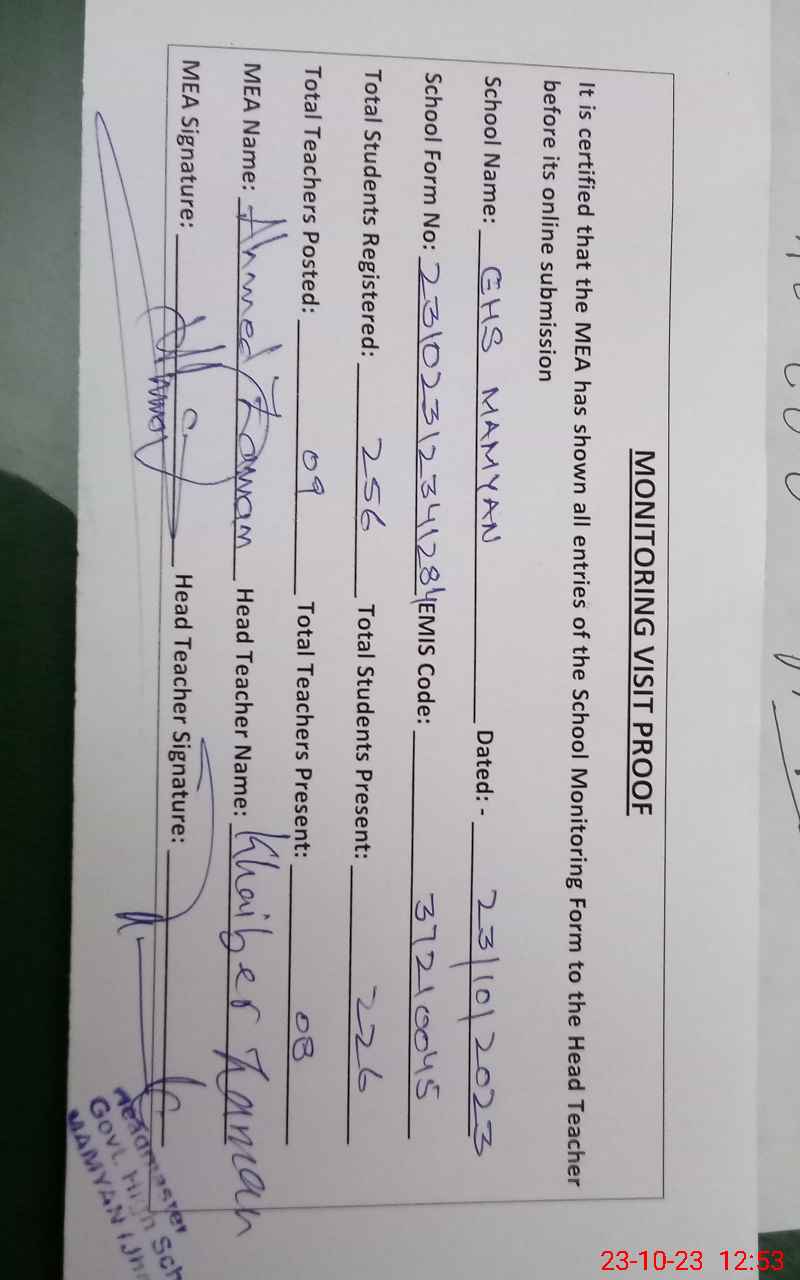 MONITORING VISIT PROOF
It is certified that the MEA has shown all entries of the School Monitoring Form to the Head Teacher
before its online submission
School Name: GHS MAMYAN Dated: - 23/10/2023
School Form No: 23102312341284 EMIS Code: 37210045
Total Students Registered: 256 Total Students Present: 226
Total Teachers Posted: 09 Total Teachers Present: 08
MEA Name: Ahmed Zawam Head Teacher Name: Khaiber Zaman
MEA Signature: Head Teacher Signature:
Headmaster
Govt. High Sch
MAMYAN
23-10-23 12:53